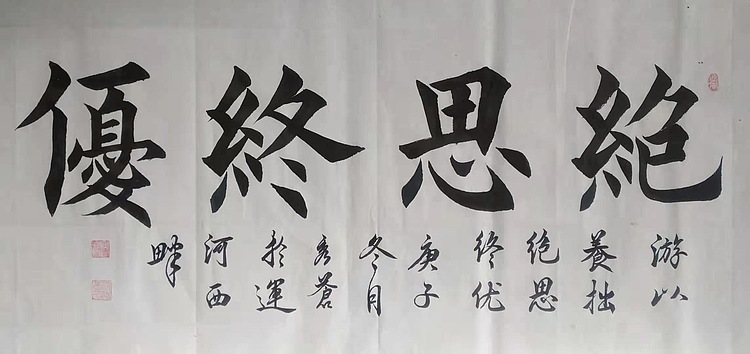 絶思終優
游以
養拙
绝思
终优
庚子
冬月
蒼
於運
河西
畔